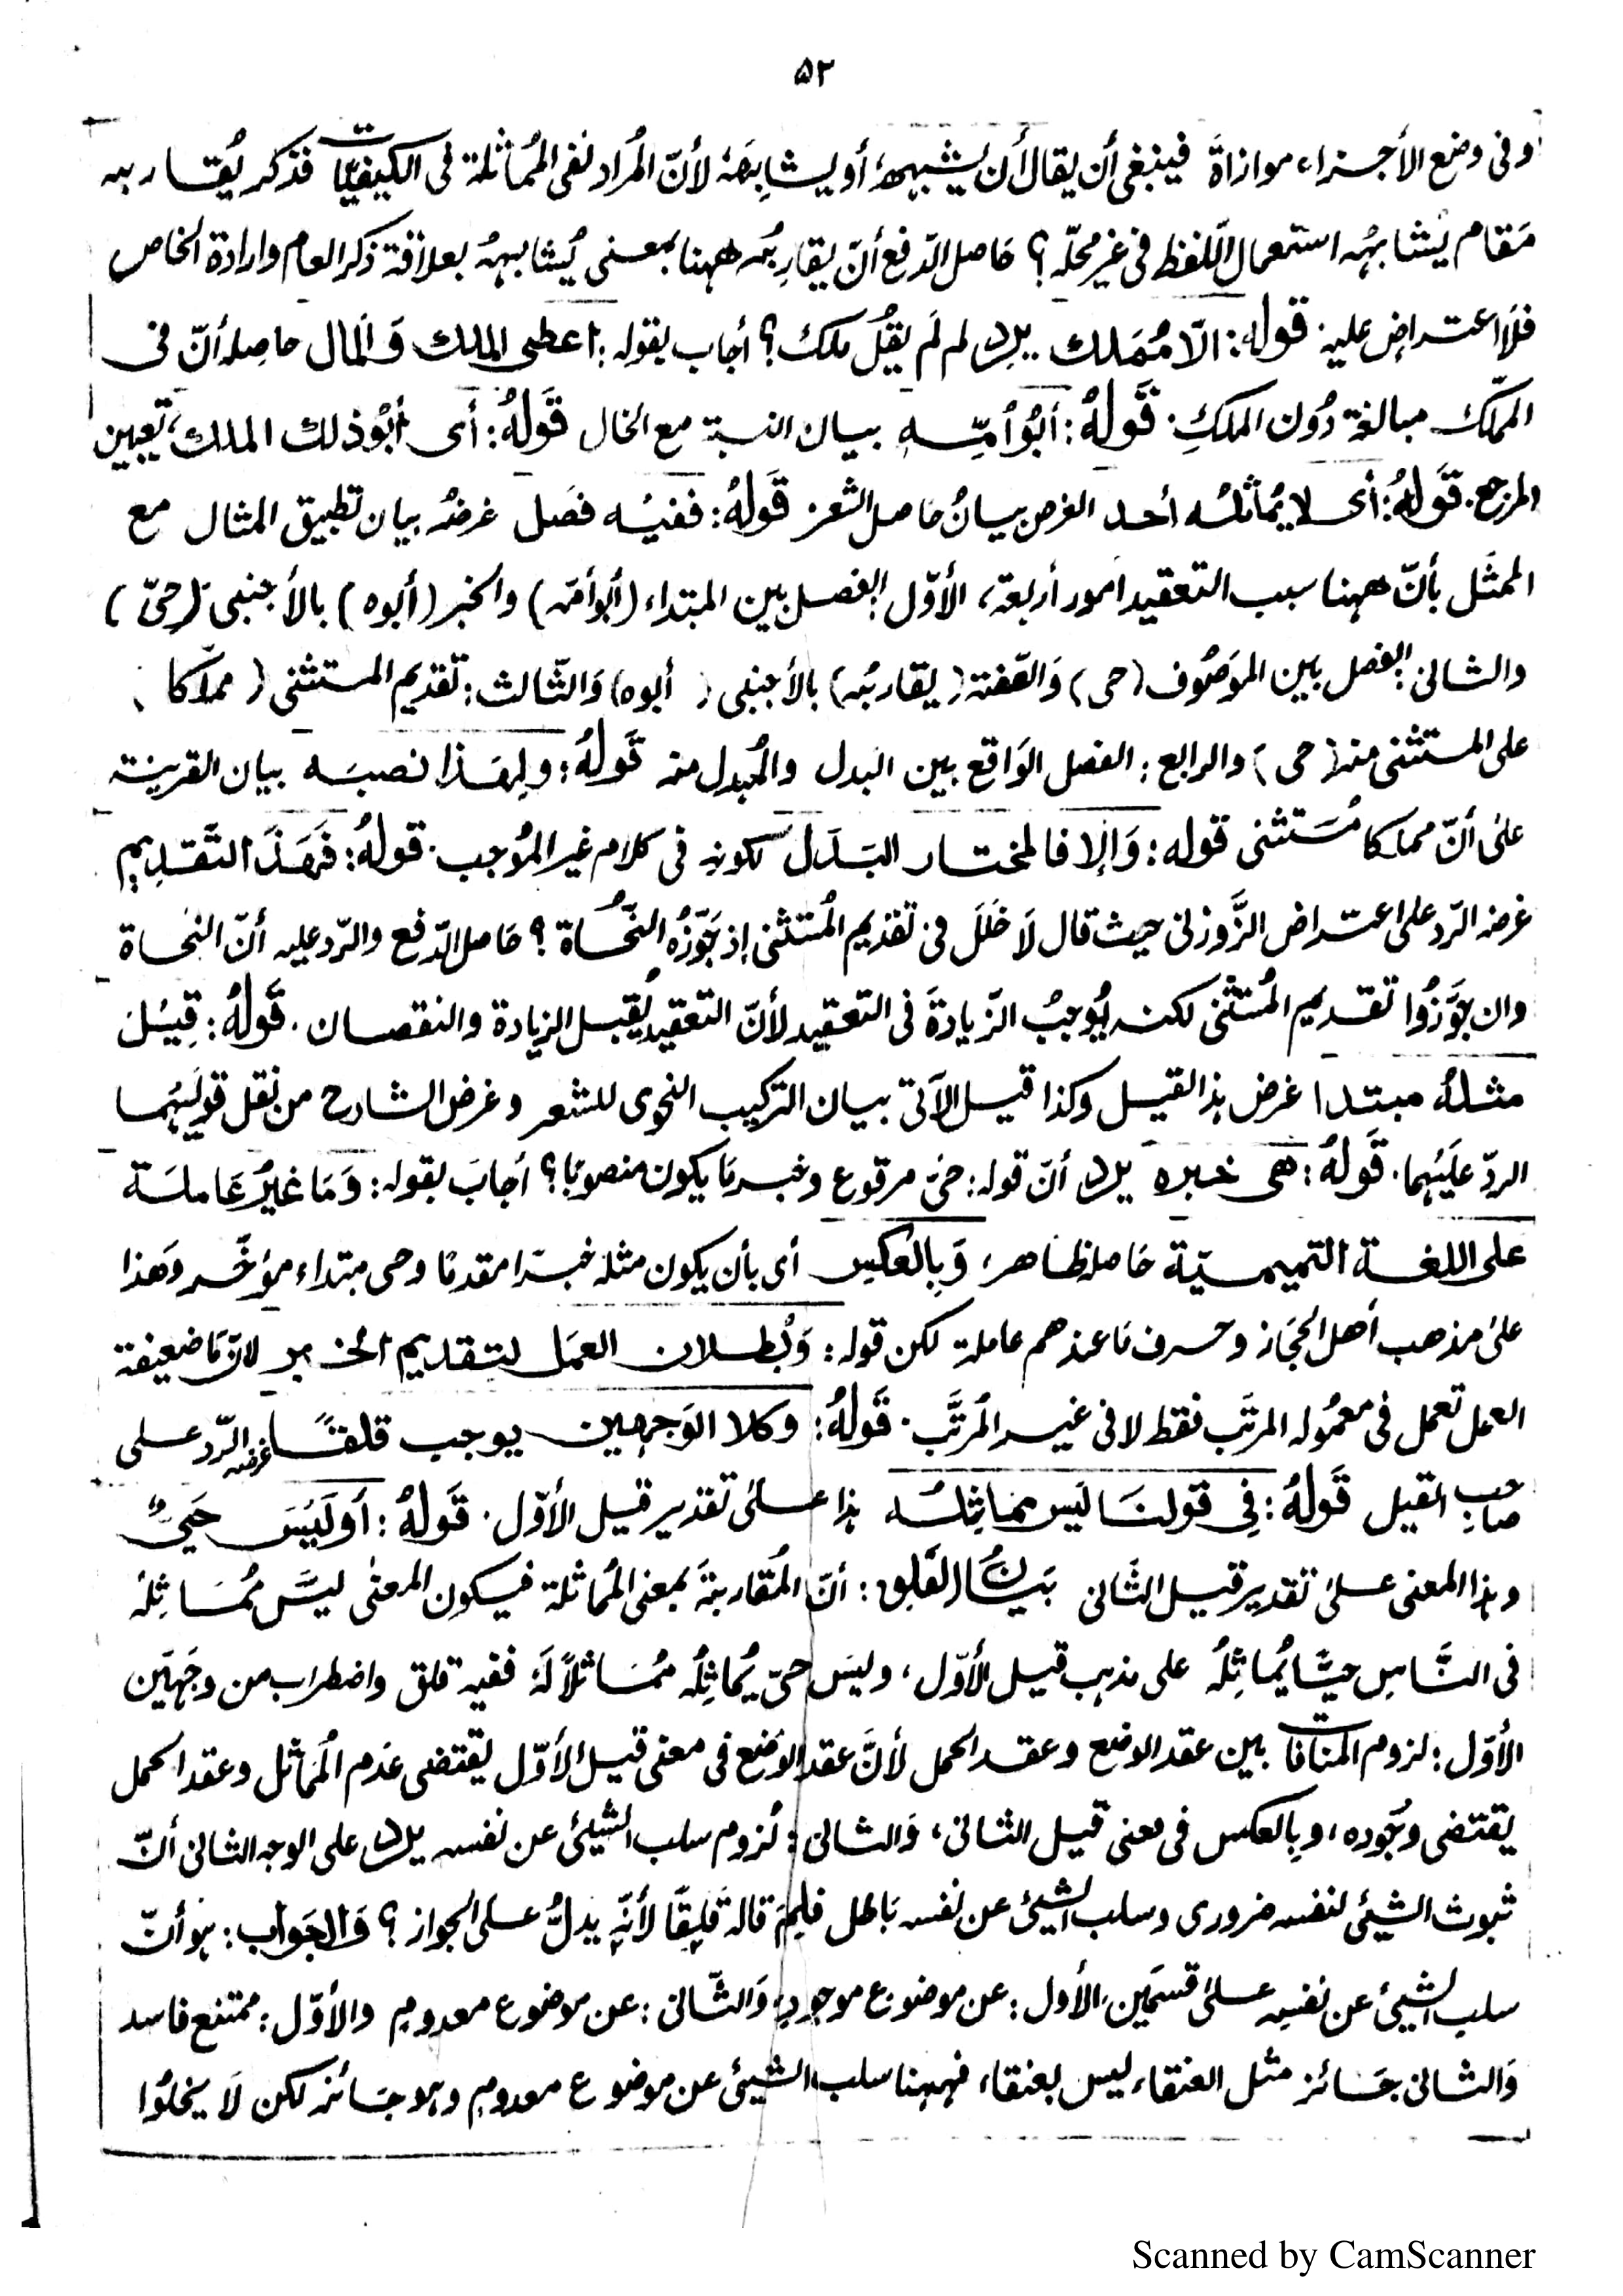 ۵۲
وفی وضع الأجزاء موازاةً فینبغی أن یقال أن یشبیهہٗ أو یشابِهَهٗ لأنّ المُراد نفی المُماثلة فی الکیفیّات فذکر یُقاربه
مَقام یُشابهُه استعمال اللّفظ فی غیر محلّه؟ حَاصل الدّفع أنّ یقارِبُه ههنا بمعنی یُشابِهہُ بعلاقة ذکر العام وارادة الخاص
فلا اعتراض علیه قوله: الّا مُمَلك یرد لم لَم یقُل ملكٌ؟ أجاب بقوله: اعطی الملك وَالمال حاصِله أنّ فی
المملّك مبالغة دُون الملكِ. قَولهُ: أبُو اُمّہ بیان النسبة مع الخال قَولهُ: أی أبُو ذلك الملك، تعیین
المرجع. قَولهُ: أی لا یُماثلُه أحد الغرض بیانُ حاصل الشعر قَولهُ: ففیُه فصَل غرضُه بیان تطبیق المثال مع
الممثَل بأنّ ههنا سبب التعقید امور أربعة، الأوّل: الفصل بین المبتداء (أبو أمّه) والخبر (أبوه) بالأجنبی (حیّ)
والثانی: الفصل بین المَوصُوف (حی) وَالصّفة (یقاربُه) بالأجنبی (أبوه) وَالثّالث: تقدیم المستثنی (مملّکا)
علی المستثنی منه (حی) والرابع: الفصل الوَاقع بین البدل والمُبدل منه قَولهُ: ولِهَذا نصبَه بیان القرینة
علیٰ أنّ مملکا مُسَتثنی قوله: وَإلا فالمختار البَدَل لکونهِ فی کلام غیر المُوجب. قَولهُ: فَهَذَا التَّقدِیم
غرضه الرّد علی اعتراض الزَّوزنی حیث قال لَا خَلَلَ فی تقدیم المُستثنی إذ جَوّزہُ النُّحَاة؟ حَاصل الدّفع والرّد علیه أنّ النحاة
وان جوَّزُوا تقدیم المُستثنی لکنه یُوجبُ الزّیادةَ فی التعقید لأنّ التعقید یُقبل الزیادة والنقصان. قَولهُ: قِیُلَ
مثلهُ مبتدا غرض ہذا القیل وکذا قیل الآتی بیان الترکیب النحوی للشعر وغرض الشارح من نقل قولَیُہما
الردّ علَیُہما. قَولهُ: حی خبره یرد أنّ قوله: حیٌ مرفوع وخبر مَا یکون منصوبًا؟ أجابَ بقوله: وَمَا غیرُ عَاملَة
علی اللغة التمیمیّة حَاصله ظاهر، وَبِالعکس أی بأن یکون مثله خبرًا مقدمًا وحی مبتداء مؤخَّر وَهَذا
علیٰ مذهب أهل الحجَاز وحرف مَا عندهم عاملة لکن قوله: وَبُطلان العمَل لتقدیم الخبر لانّ مَا ضعیفة
العمل تعمل فی معمُوله المرتَب فقط لا فی غیر المُرتَّب. قَولهُ: وکلا الوَجهین یوجب قلقًا غرضه الرّد علی
صاحبِ القیل قَولهُ: فِی قولنَا لَیس مماثِلُه ہذا علیٰ تقدیر قیل الأوّل. قَولهُ: أو لَیَسَ حَیٌّ
وہذا المعنی علیٰ تقدیر قیل الثَانی بَیَانُ القَلِق: أنّ المُقاربةَ بمعنی المُماثلة فیکون المعنٰی لیسَ مُمَاثِلهُ
فی النَّاسِ حیًّا یُماثِلُہُ علی مذہب قیل الأوّل، ولیسَ حیّ یُماثِلُہ مُمَاثلاً لَهُ ففیه قلق واضطراب من وجَهَین
الأوّل: لزوم المنافات بین عقد الوضع وعقد الحمل لأنَّ عقد الوَضع فی معنی قیل الأوّل یقتضی عَدم المُماثل وعقد الحمل
یقتضی وجُوده، وبِالعکس فی معنی قیل الثانی، وَالثانی: لُزوم سلب الشیئ عن نفسه یرد علی الوجه الثانی أنّ
ثبوث الشیئ لنفسه ضروری وسلب الشیئ عن نفسه بَاطل فلِمَ قالَ قَلِقًا لأنّه یدلُّ علی الجواز؟ وَالجَواب: ہو أنّ
سلب الشیئ عن نفسِهِ علیٰ قسمَین، الأول: عن موضوع موجودٍ، وَالثّانی: عن موضوع معدومٍ والأوّل: ممتنع فاسد
وَالثانی جَائز مثل العنقاء لیس بعنقاء، فههنا سلب الشیئ عن موضوع معدومٍ وہو جَائز لکن لَا یخلوُا
Scanned by CamScanner